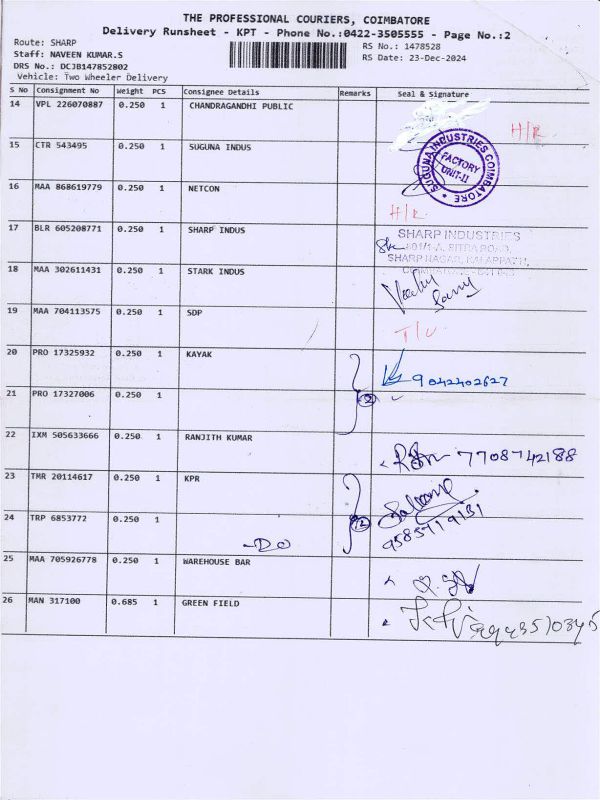 THE PROFESSIONAL COURIERS, COIMBATORE
Delivery Runsheet - KPT - Phone No.:0422-3505555 - Page No.:2
Route: SHARP
RS No.: 1478528
Staff: NAVEEN KUMAR.S
RS Date: 23-Dec-2024
DRS No.: DCJB147852802
Vehicle: Two Wheeler Delivery
S No Consignment No Weight PCS Consignee Details Remarks Seal & Signature
14 VPL 226070887 0.250 1 CHANDRAGANDHI PUBLIC H/R
15 CTR 543495 0.250 1 SUGUNA INDUS
SUGUNA INDUSTRIES COIMBATORE
FACTORY
UNIT-II
16 MAA 868619779 0.250 1 NETCON H/R
17 BLR 605208771 0.250 1 SHARP INDUS
SHARP INDUSTRIES
SHARP NAGAR, KALAPPATTI,
18 MAA 302611431 0.250 1 STARK INDUS
19 MAA 704113575 0.250 1 SDP
20 PRO 17325932 0.250 1 KAYAK 9042402627
21 PRO 17327006 0.250 1 2
22 IXM 505633666 0.250 1 RANJITH KUMAR 7708742188
23 TMR 20114617 0.250 1 KPR
24 TRP 6853772 0.250 1 -DO 2 9585719131
25 MAA 705926778 0.250 1 WAREHOUSE BAR
26 MAN 317100 0.685 1 GREEN FIELD